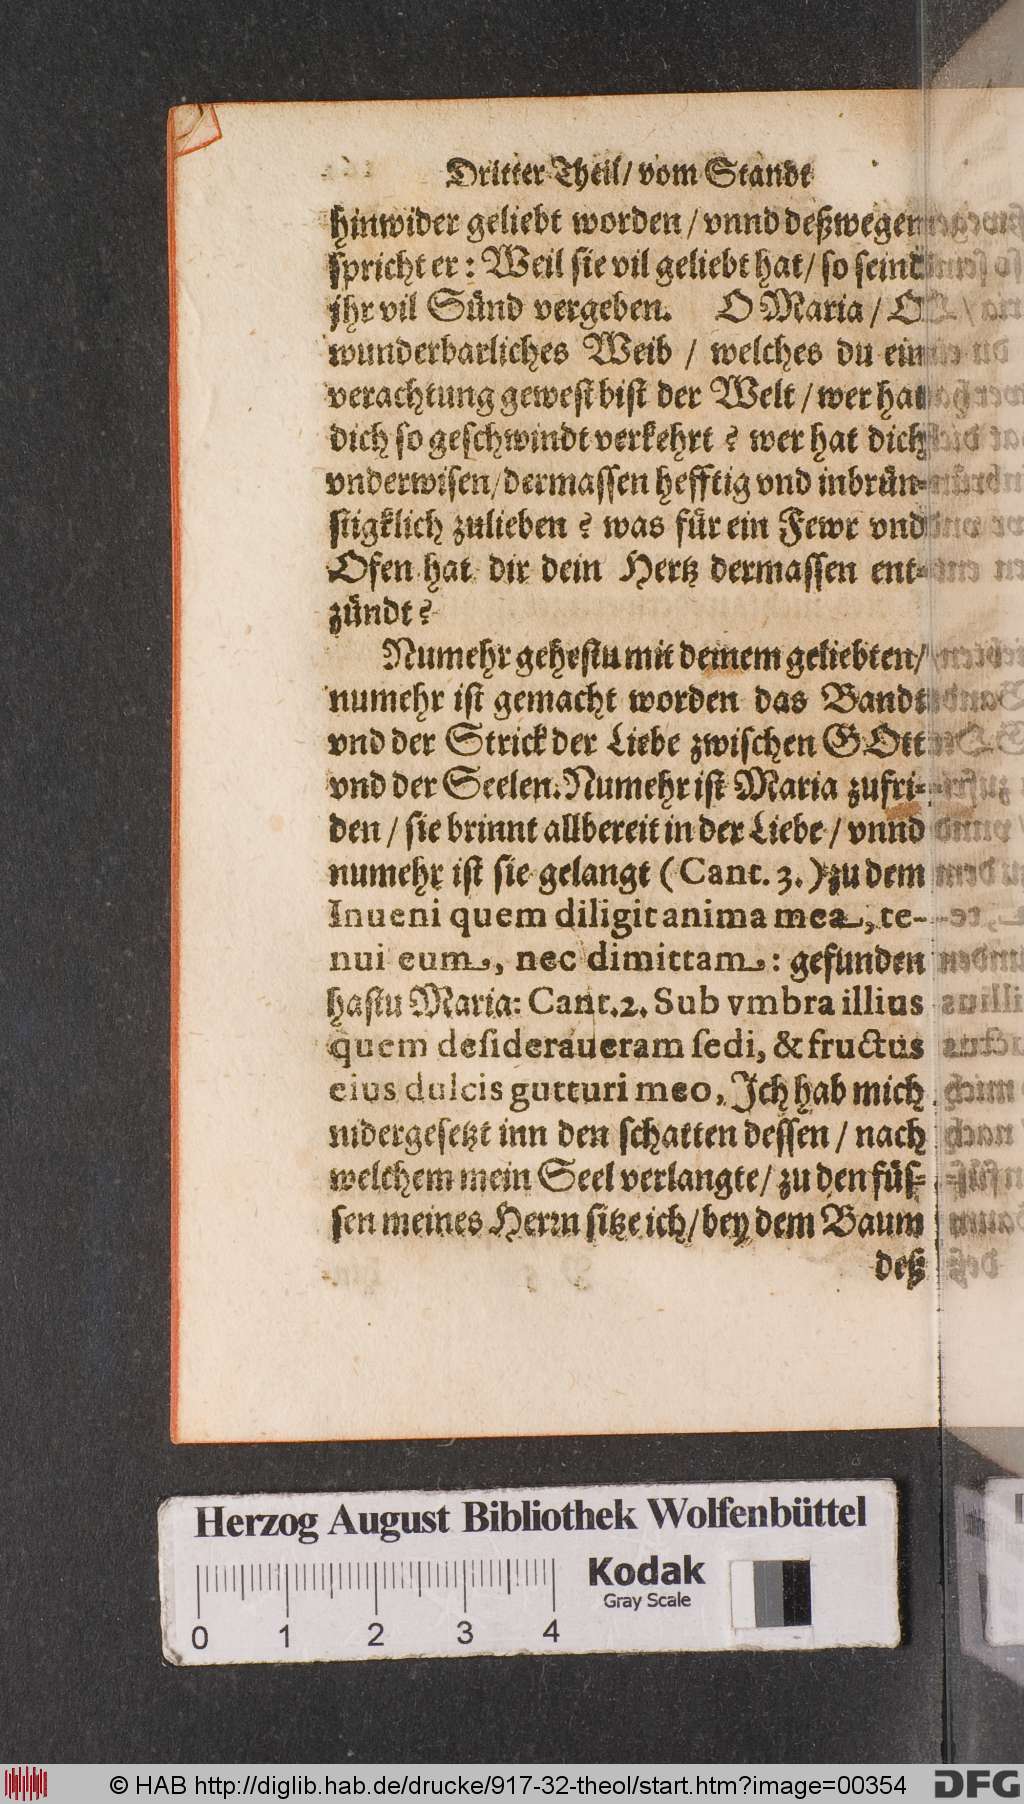 Dritter Theil/ vom Standt
hinwider geliebt worden / vnnd deßwegen
spricht er : Weil sie vil geliebt hat/ so seind
jhr vil Sünd vergeben. O Maria / O
wunderbarliches Weib / welches du ein
verachtung gewest bist der Welt / wer hat
dich so geschwindt verkehrt ? wer hat dich
vnderwisen/ dermassen hefftig vnd inbrün-
stigklich zulieben ? was für ein Fewr vnd
Ofen hat dir dein Hertz dermassen ent-
zündt ?
Numehr gehestu mit deinem geliebten/
numehr ist gemacht worden das Bandt
vnd der Strick der Liebe zwischen GOtt
vnd der Seelen. Numehr ist Maria zufri-
den / sie brinnt allbereit in der Liebe / vnnd
numehr ist sie gelangt (Cant. 3.) zu dem
Inueni quem diligit anima mea, te-
nui eum, nec dimittam: gefunden
hastu Maria: Cant. 2. Sub vmbra illius
quem desideraueram sedi, & fructus
eius dulcis gutturi meo, Ich hab mich
nidergesetzt inn den schatten dessen / nach
welchem mein Seel verlangte/ zu den füs-
sen meines Herrn sitze ich/ bey dem Baum
deß
Herzog August Bibliothek Wolfenbüttel
Kodak
Gray Scale
0 1 2 3 4
© HAB http://diglib.hab.de/drucke/917-32-theol/start.htm?image=00354
DFG